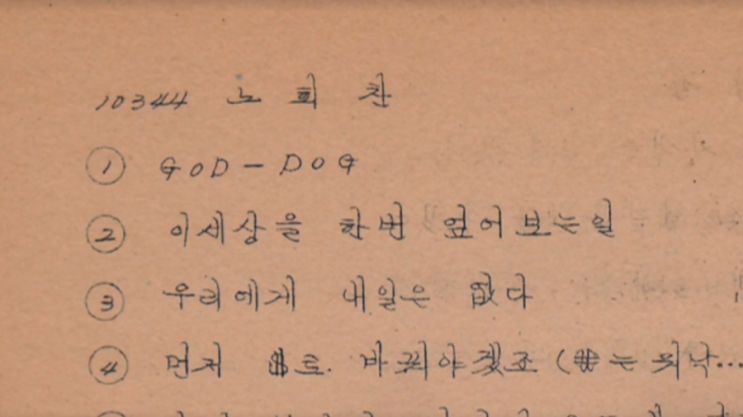 10344 노회찬
① GOD - DOG
② 이세상을 한번 엎어보는일
③ 우리에게 내일은 없다
④ 먼저 바뀌야겠죠 (